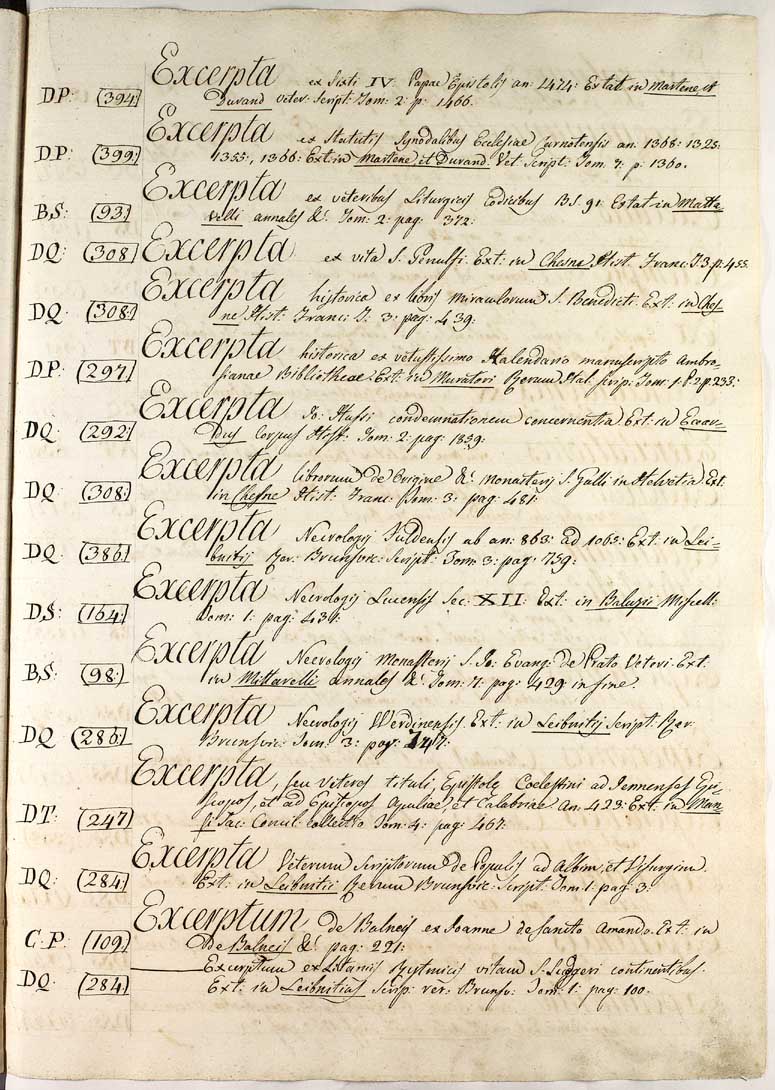 Excerpta ex Sixti IV. Papae Epistolis an: 1474: Extat in Martene, et
D.P: (394) Durand veter: Script: Tom: 2: p: 1466.
Excerpta ex Statutis Synodalibus Ecclesiae Carnotensis an. 1368: 1325:
D.P: (399) 1355:, 1366: Ext: in Martene et Durand. Vet. Script: Tom. 7: p: 1360.
Excerpta ex veteribus Liturgicis Codicibus B.S. 91: Extat in Mitta
B.S: (93) velli annales &c. Tom: 2: pag: 372:
DQ: (308) Excerpta ex vita S. Genulfi. Ext: in Chesne Hist. Franc: T.3. p: 455.
Excerpta historica ex libris miraculorum S. Benedicti: Ext: in Ches
DQ: (308:) ne Hist: Franc: T: 3: pag: 439:
Excerpta historica ex vetustissimo Kalendario manuscripto Ambro-
D.P: (297) sianae Bibliothecae. Ext: in Muratori Rerum Ital. scrip: Tom: 1: P.2 p. 233:
Excerpta Jo: Hussi condemnationem concernentia. Ext: in Eccar-
DQ: (292:) dus Corpus Hist: Tom: 2: pag: 1859:
Excerpta librorum de Origine &c. monasterij S. Galli in Helvetia. Ext:
DQ: (308:) in Chesne Hist: Franc: Tom: 3: pag: 481:
Excerpta Necrologij Fuldensis ab an: 863: ad 1065: Ext: in Lei-
DQ: (386) bnitij Rer: Brunsvic: Script: Tom: 3: pag: 759:
Excerpta Necrologij Lucensis Sec: XII: Ext: in Baluzii Miscell:
D.S: (164:) Tom: 1: pag: 431:
Excerpta Necrologij Monasterij S. Jo: Evang: de Prato Veteri. Ext:
B.S: (98:) in Mittarelli annales &c. Tom: 7: pag: 429: in fine.
Excerpta Necrologij Werdinensis. Ext: in Leibnitij Script: Rer:
DQ (286) Brunsvic: Tom: 3: pag: 747:
Excerpta, seu Veteres tituli, Epistolę Coelestini ad Viennenses Epi-
scopos, et ad Episcopos Apuliae, et Calabriae. An. 423: Ext: in Man
DT: (247) si Sac: Concil: collectio Tom: 4: pag: 467:
Excerpta Veterum Scriptorum de Populis ad Albim, et Visurgim.
DQ: (284) Ext: in Leibnitii Rerum Brunsvic: Script: Tom: 1: pag: 3:
Excerptum de Balneis ex Joanne de Sancto Amando. Ext: in
C.P: (109) De Balneis &c. pag: 221:
Excerptum ex Litaniis Rytmicis vitam S. Liudgeri continentibus.
DQ: (284) Ext: in Leibnitius Scrip: rer: Brunsv: Tom: 1: pag: 100.